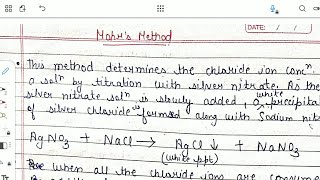 DATE: / /
Mohr's Method
• This method determines the chloride ion concⁿ.
a solⁿ by titration with silver nitrate. As the
silver nitrate solⁿ is slowly added, a white precipita
of silver chloride is formed along with Sodium nit
AgNO₃ + NaCl → AgCl ↓ + NaNO₃
(white ppt)
when all the chloride ions are consume